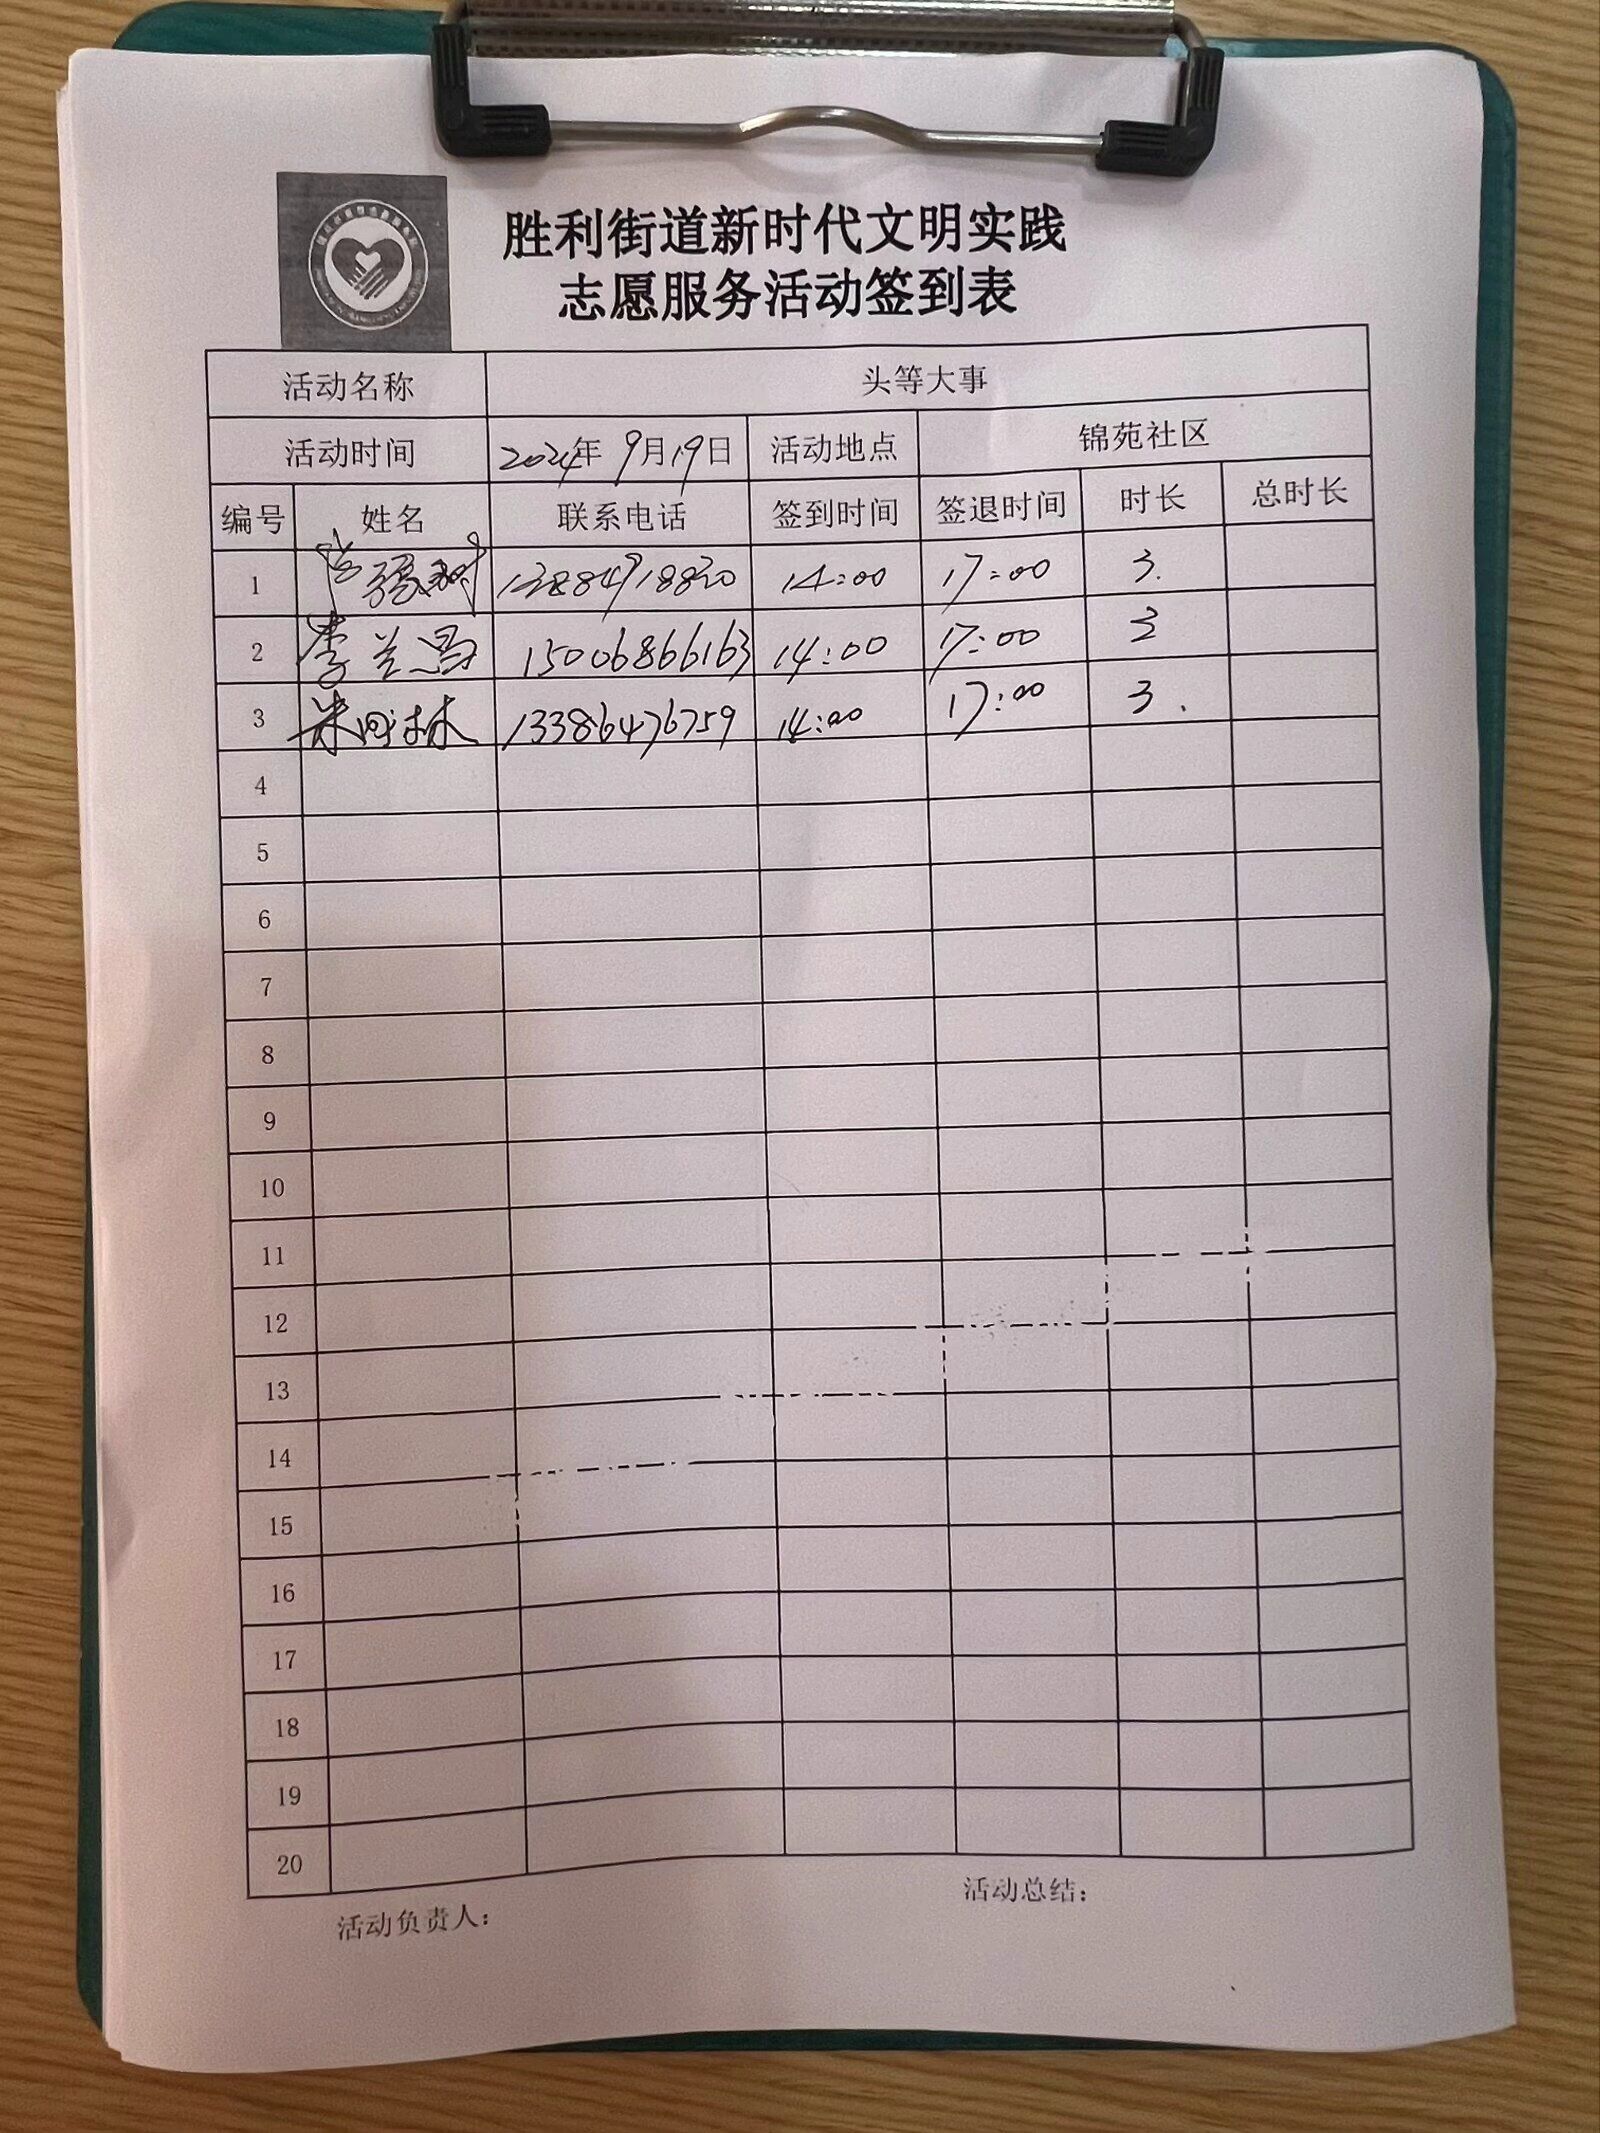 胜利街道新时代文明实践
志愿服务活动签到表
活动名称 头等大事
活动时间 2024年 9月19日 活动地点 锦苑社区
编号 姓名 联系电话 签到时间 签退时间 时长 总时长
1 13884918820 14:00 17:00 3.
2 李兰昌 15006866163 14:00 17:00 3
3 13386476759 14:00 17:00 3.
4
5
6
7
8
9
10
11
12
13
14
15
16
17
18
19
20
活动负责人: 活动总结: